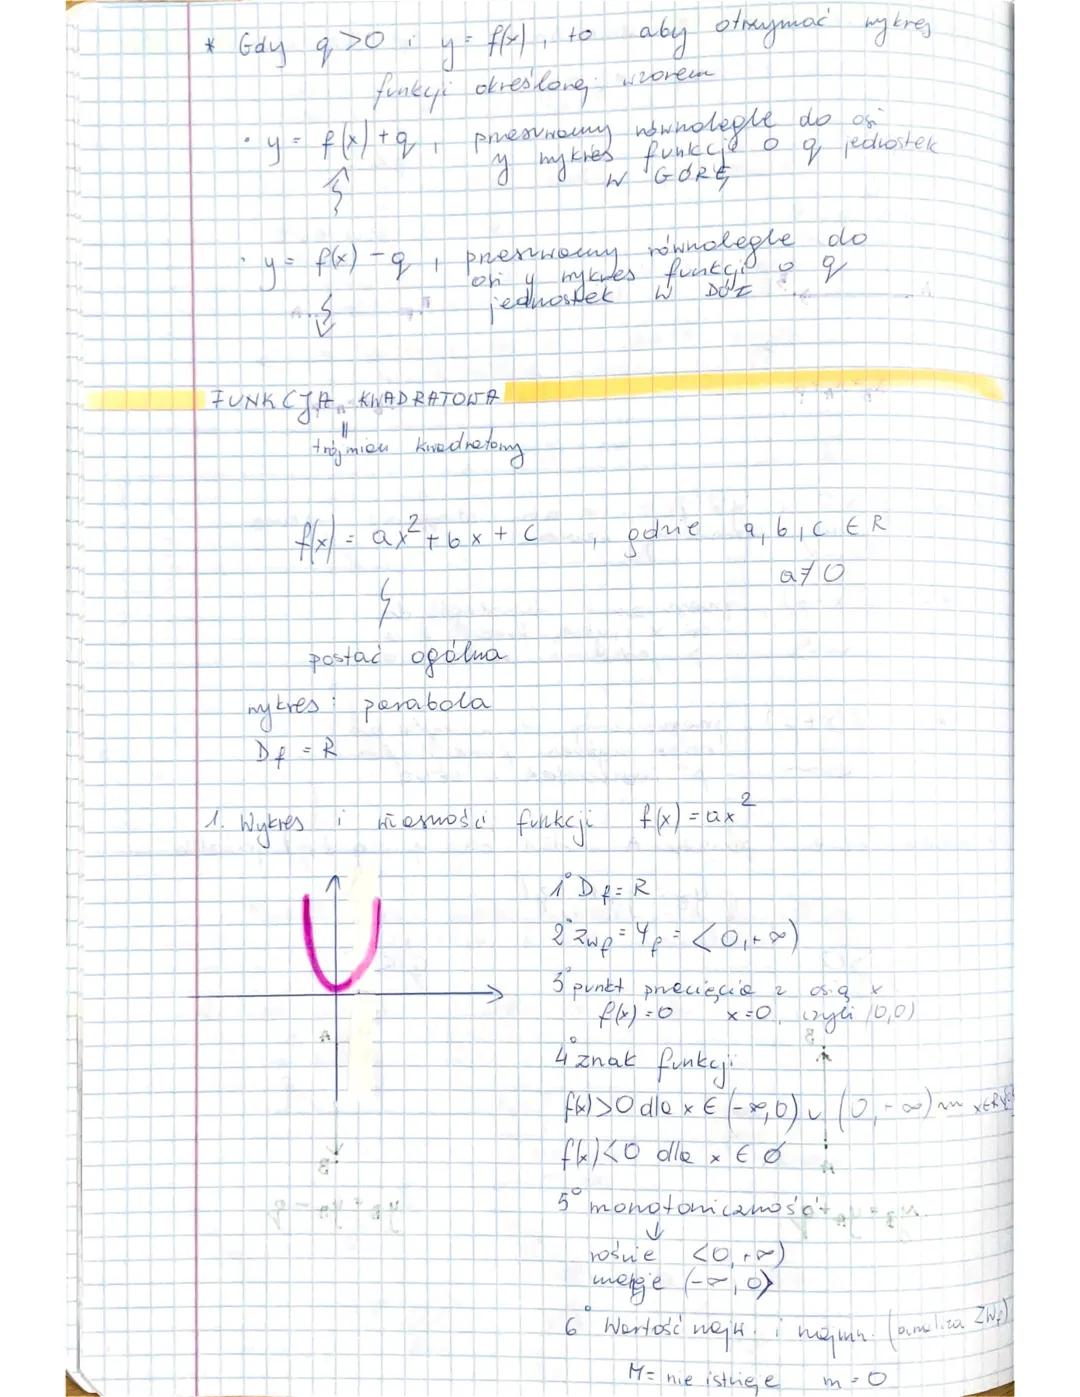 * Gdy q>0 i y = f(x), to aby otrzymać wykres
funkcji określonej wzorem
• y = f(x)+q, przesuwamy równolegle do osi
y wykres funkcji o q jednostek
W GÓRĘ
• y = f(x) -q, przesuwamy równolegle do
osi y wykres funkcji o q
jednostek W DÓŁ
FUNKCJA KWADRATOWA
trójmian kwadratowy
f(x) = ax²+bx+c, gdzie a,b,c ∈ R
a≠0
postać ogólna
wykres: parabola
Df = R
1. Wykres i własności funkcji f(x) = ax²
1° Df = R
2° Zwf = Yf = <0,+∞)
3° punkt przecięcia z osią x
f(x)=0 x=0, czyli (0,0)
4° znak funkcji
f(x)>0 dla x ∈ (-∞,0) ∪ (0,-∞)
f(x)<0 dla x ∈ ∅
5° monotoniczność
↓
rośnie <0,+∞)
maleje (-∞,0>
6° Wartość najw. i najmn. (analiza ZWf)
M= nie istnieje m=0